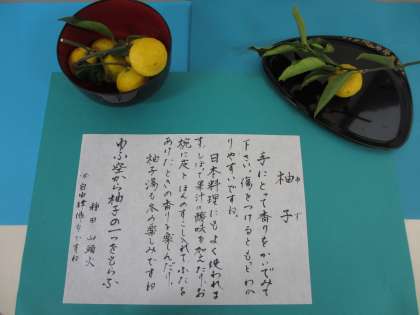 柚子
ゆず
手にとって香りをかいでみて
下さい。傷をつけるともっとわか
りやすいですね。
日本料理にもよく使われま
す。しぼって果汁の酸味を加えたり、お
椀に皮をほんのすこし入れてふたを
あけたときの香りを楽しんだり。
柚子湯も冬の楽しみですね
ゆふ空から柚子の一つをもらふ
種田山頭火
自由律俳句ですね